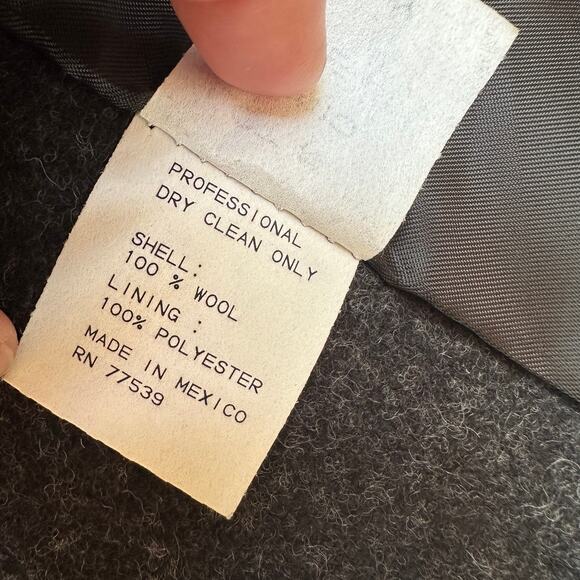 PROFESSIONAL
DRY CLEAN ONLY
SHELL:
100 % WOOL
LINING :
100% POLYESTER
MADE IN MEXICO
RN 77539